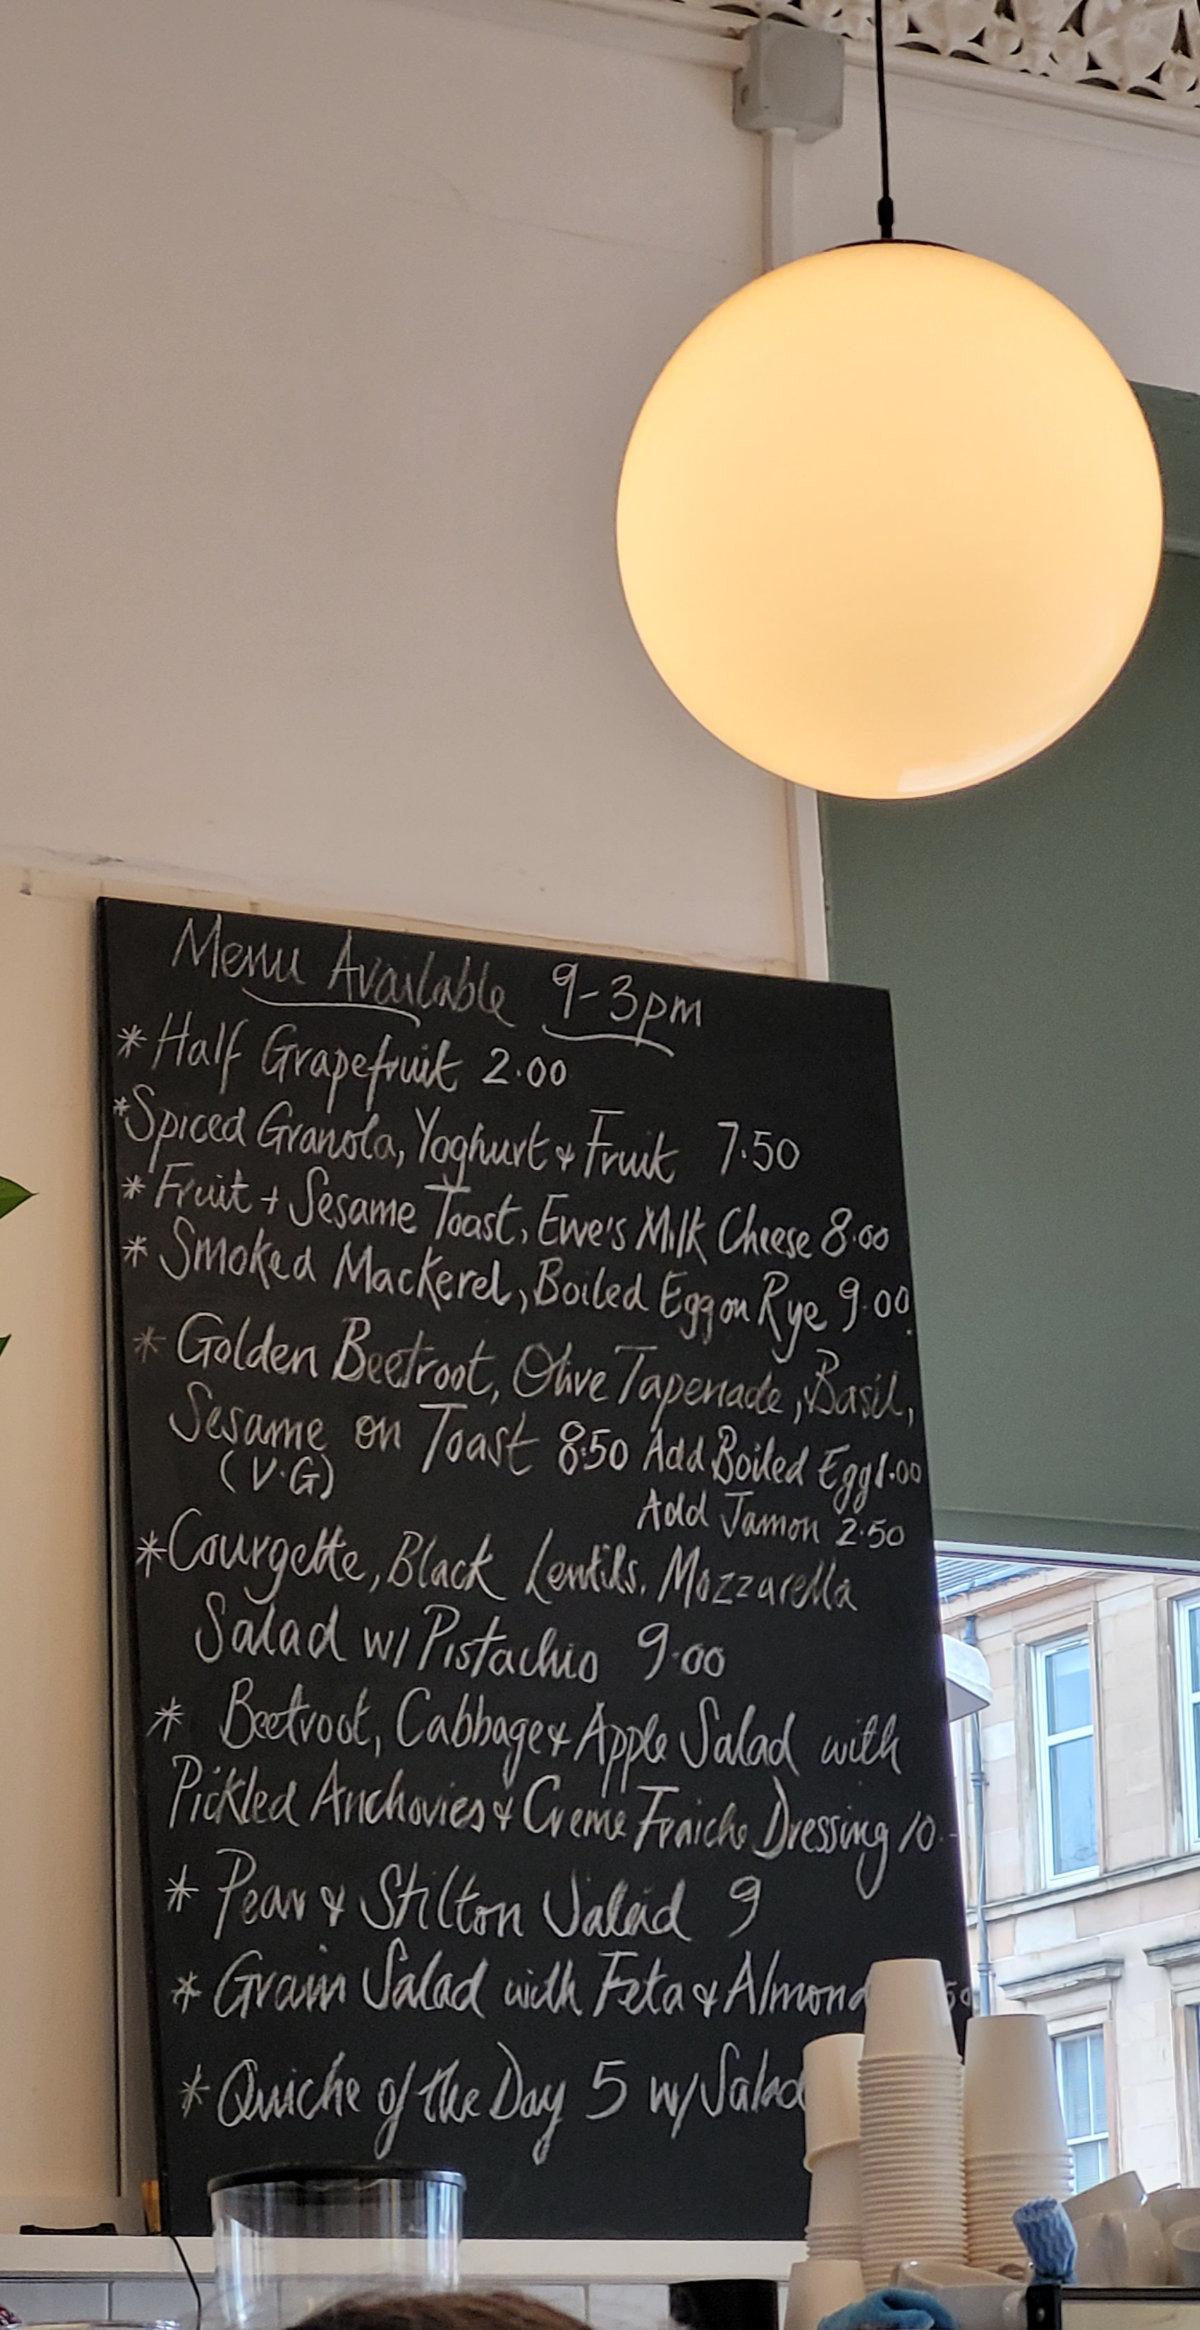 Menu Available 9-3pm
* Half Grapefruit 2.00
* Spiced Granola, Yoghurt & Fruit 7.50
* Fruit + Sesame Toast, Ewe's Milk Cheese 8.00
* Smoked Mackerel, Boiled Egg on Rye 9.00
* Golden Beetroot, Olive Tapenade, Basil,
Sesame on Toast 8.50 Add Boiled Egg 1.00
(V.G)
Add Jamon 2.50
* Courgette, Black Lentils, Mozzarella
Salad w/ Pistachio 9.00
* Beetroot, Cabbage & Apple Salad with
Pickled Anchovies & Creme Fraiche Dressing 10.-
* Pear & Stilton Salad 9
* Grain Salad with Feta & Almond
* Quiche of the Day 5 w/ Salad